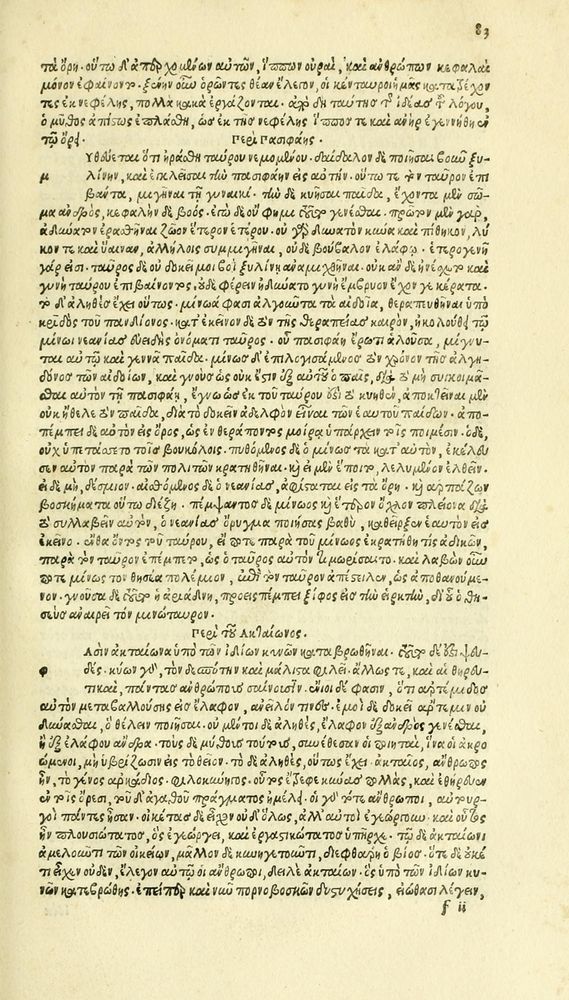 83
τὰ ὄρη. οὕτω δ' ἀπερχομένων αὐτῶν, ἵππων οὐραὶ, καὶ ἀνθρώπων κεφαλαὶ
μόνον ἐφαίνοντο. ξένην οὖν ὁρῶντες θέαν ἔλεγον, οἱ κένταυροι ἡμᾶς κατατρέχον
τες ἐκ νεφέλης, πολλὰ κακὰ ἐργάζονται. ἀπὸ δὴ ταύτης τῆς ἰδέας τοῦ λόγου,
ὁ μῦθος ἀπίστως ἐπλάσθη, ὡς ἐκ τῆς νεφέλης ἵππος τε καὶ ἀνὴρ ἐγεννήθη ἐν
τῷ ὄρει. Περὶ Πασιφάης.
Μυθεύεται ὅτι ἠράσθη ταύρου νεμομένου. δαίδαλον δὲ ποιῆσαι βοῦν ξυ-
μ λίνην, καὶ ἐγκλεῖσαι τὴν πασιφάην εἰς αὐτήν. οὕτω τε τὸν ταῦρον ἐπι
βάντα, μιγῆναι τῇ γυναικί. τὴν δὲ κυῆσαι παῖδα, ἔχοντα μὲν σῶ-
μα ἀνδρὸς, κεφαλὴν δὲ βοός. ἐγὼ δὲ οὔ φημι τοῦτο γενέσθαι. πρῶτον μὲν γὰρ,
ἀδύνατον ἐρασθῆναι ζῶον ἕτερον ἑτέρου. οὐ γὰρ δυνατὸν κύνα καὶ πίθηκον, λύ
κον τε καὶ ὕαιναν, ἀλλήλοις συμμιγῆναι, οὐδὲ βούβαλον ἐλάφῳ. ἑτερογενῆ
γάρ εἰσι. ταῦρος δὲ οὐ δοκεῖ μοι βοῒ ξυλίνῃ ἀναμιχθῆναι. οὐκ ἂν δὲ ἠνέσχετο καὶ
γυνὴ ταύρου ἐπιβαίνοντος, οὐδὲ φέρειν ἠδύνατο γυνὴ ἔμβρυον ἔχον γε κέρατα.
τὸ δ' ἀληθὲς ἔχει οὕτως. μίνωά φασι ἀλγοῦντα τὰ αἰδοῖα, θεραπευθῆναι ὑπὸ
κρίδος τοῦ πανδίονος. κατ' ἐκεῖνον δὲ τὸν τῆς θεραπείας καιρὸν, ἠκολούθει τῷ
μίνωι νεανίας εὐειδὴς ὀνόματι ταῦρος. οὗ πασιφάη ἔρωτι ἁλοῦσα, μίγνυ-
ται αὐτῷ καὶ γεννᾷ παῖδα. μίνως δ' ἐπιλογισάμενος τὸν χρόνον τῆς ἀλγη-
δόνος τῶν αἰδοίων, καὶ γνοὺς ὡς οὐκ ἔστιν ἐξ αὐτοῦ ὁ παῖς, διὰ τὸ μὴ συγκοιμᾶ-
σθαι αὐτὸν τῇ πασιφάῃ, ἔγνω ὡς ἐκ τοῦ ταύρου εἴη τὸ κυηθὲν, ἀποκτεῖναι μὲν
οὐκ ἤθελε τὸν παῖδα, διὰ τὸ δοκεῖν ἀδελφὸν εἶναι τῶν ἑαυτοῦ παίδων. ἀπο-
πέμπει δὲ αὐτὸν εἰς ὄρος, ὡς ἐν θεράποντος μοίρᾳ ὑπάρχειν τοῖς ποιμέσιν. ὁ δὲ,
οὐχ ὑπετάσσετο τοῖς βουκόλοις. πυθόμενος δὲ ὁ μίνως τὰ κατ' αὐτὸν, ἐκέλευ
σεν αὐτὸν παρὰ τῶν πολιτῶν κρατηθῆναι. καὶ εἰ μὲν ἕποιτο, λελυμένον ἐλθεῖν.
εἰ δὲ μὴ, δέσμιον. αἰσθόμενος δὲ ὁ νεανίας, ἀφίσταται εἰς τὰ ὄρη. καὶ ἁρπάζων
βοσκήματα οὕτω διέζη. πέμψαντος δὲ μίνωος καὶ ἕτερον ὄχλον πλείονα διὰ
τὸ συλλαβεῖν αὐτὸν, ὁ νεανίας ὄρυγμα ποιήσας βαθὺ, καθεῖρξεν ἑαυτὸν εἰς
ἐκεῖνο. ἔνθα ὄντος τοῦ ταύρου, εἴ ποτε παρὰ τοῦ μίνωος ἐκρατήθη τις ἀδικῶν,
παρὰ τὸν ταῦρον ἐπέμπετο, ὡς ὁ ταῦρος αὐτὸν τιμωρήσαιτο. καὶ λαβὼν οὖν
ποτε μίνως τὸν θησέα πολέμιον, ἐπὶ τὸν ταῦρον ἀπέστειλεν, ὡς ἀποθανούμε-
νον. γνοῦσα δὲ τοῦτο ἡ ἀριάδνη, προεισπέμπει ξίφος εἰς τὴν εἱρκτὴν, δι' οὗ ὁ θη-
σεὺς ἀναιρεῖ τὸν μινώταυρον.
Περὶ τοῦ Ἀκταίωνος.
Φασὶν ἀκταίωνα ὑπὸ τῶν ἰδίων κυνῶν καταβρωθῆναι. τοῦτο δέ ἐστι ψευ-
φ δές. κύων γὰρ, τὸν δεσπότην καὶ μάλιστα φιλεῖ. ἄλλως τε, καὶ αἱ θηρευ-
τικαὶ, πάντας ἀνθρώπους σαίνουσιν. ἔνιοι δέ φασιν, ὅτι ἀρτέμιδος
αὐτὸν μεταβαλλούσης εἰς ἔλαφον, ἀνεῖλόν τινες. ἐμοὶ δὲ δοκεῖ ἄρτεμιν οὐ
δύνασθαι, ὃ θέλειν ποιῆσαι. οὐ μέντοι δὲ ἀληθὲς, ἔλαφον ἐξ ἀνδρὸς γενέσθαι,
ἢ ἐξ ἐλάφου ἄνδρα. τοὺς δὲ μύθους τούτους, συνέθεσαν οἱ ποιηταὶ, ἵνα οἱ ἀκρο
ώμενοι, μὴ ὑβρίζωσιν εἰς τὸ θεῖον. τὸ δὲ ἀληθὲς, οὕτως ἔχει. ἀκταίος, ἄνθρωπος
ἦν, τὸ γένος ἀρκάδιος. φιλοκύνηγος. οὗτος ἔτρεφε κύνας πολλὰς, καὶ ἐθήρευεν
ἐν τοῖς ὄρεσι, τοῦ δ' ἀγαθοῦ πράγματος ἠμέλει. οἱ γὰρ τότε ἄνθρωποι, αὐτουρ-
γοὶ πάντες ἦσαν. οἰκέτας δὲ εἶχον οὐδ' ὅλως, ἀλλ' αὐτοὶ ἐγεώργουν. καὶ οὗτος
ἦν πλουσιώτατος, ὃς ἐγεώργει, καὶ ἐργατικώτατος ὑπῆρχε. τῷ δὲ ἀκταίωνι
ἀμελοῦντι τῶν οἰκείων, μᾶλλον δὲ κυνηγετοῦντι, διεφθάρη ὁ βίος. ὅτε δὲ οὐκέ
τι εἶχεν οὐδὲν, ἔλεγον αὐτῷ οἱ ἄνθρωποι, δείλε ἀκταίων. ὃς ὑπὸ τῶν ἰδίων κυ-
νῶν κατεβρώθης. ἐπεὶ γὰρ καὶ νῦν πορνοβοσκῶν δυστυχήσεις, εἰώθασι λέγειν,
f ii